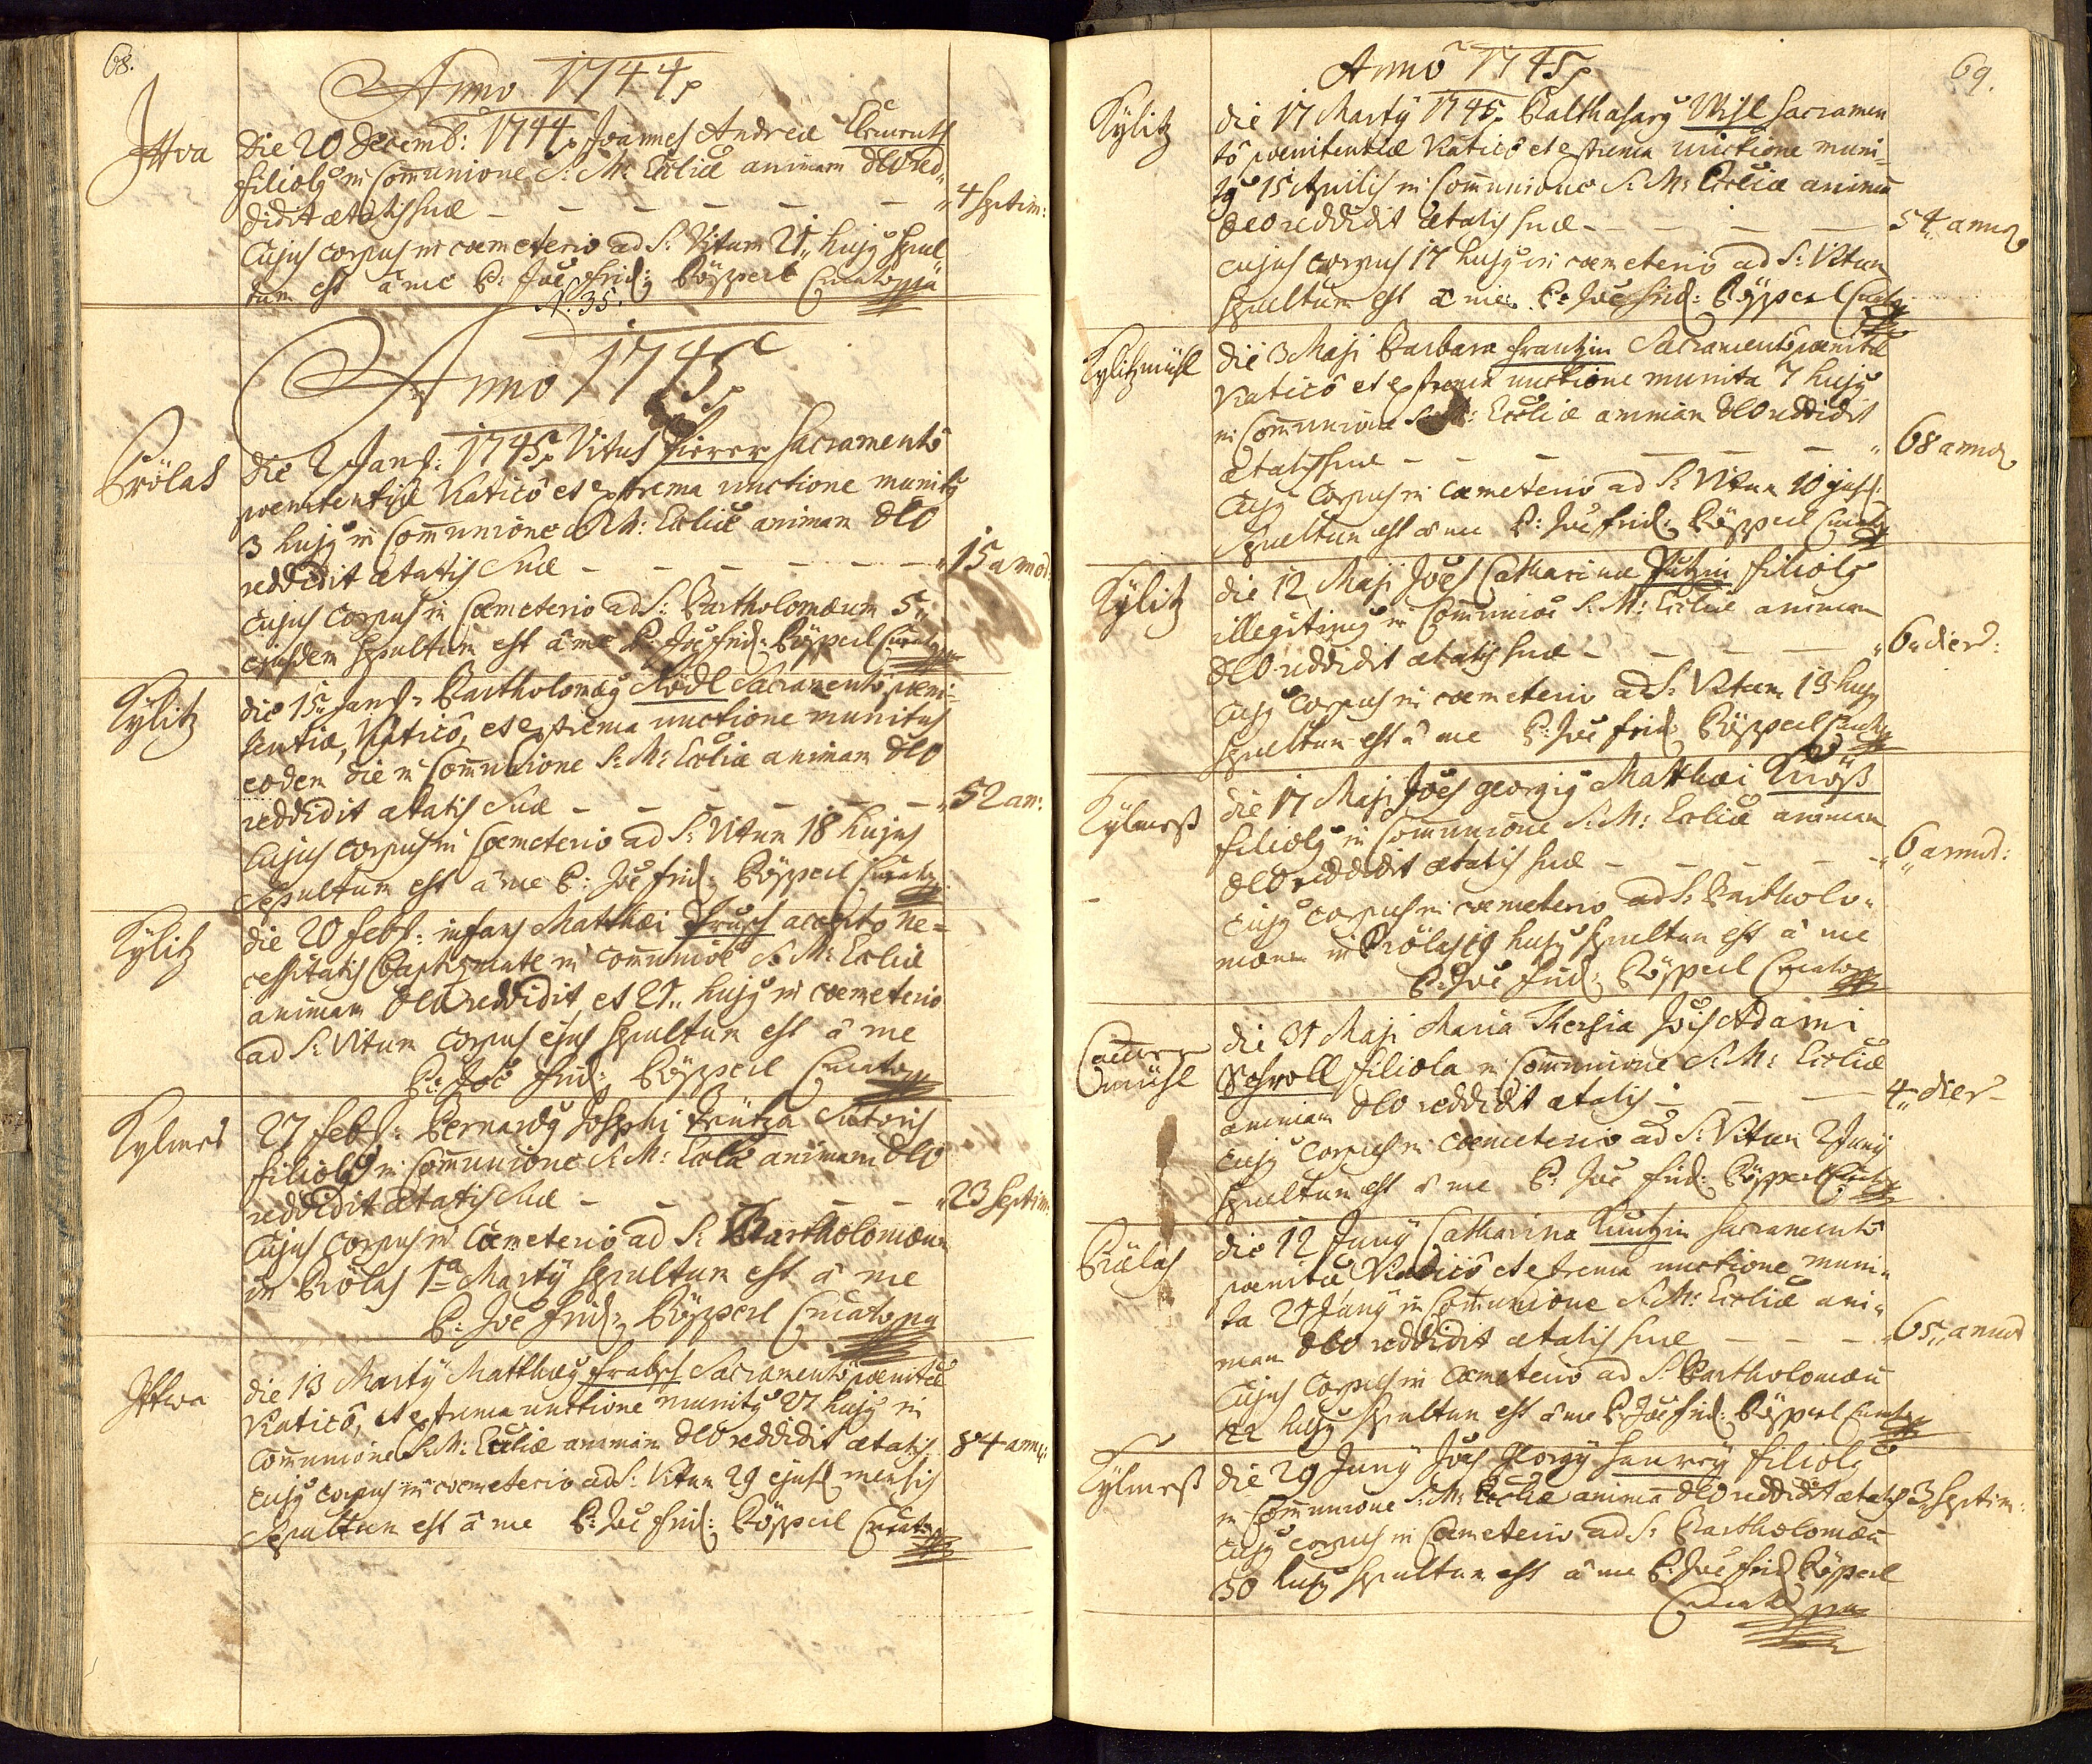 68.
Anno 1744
Ittva
die 20 Decemb: 1744 Joannes Andreæ Clements
filiolus in Communione S: M: Eccliæ animam Deo red,,
didit ætatis suæ — — — — — — „ 4 septim:
Cujus corpus in cœmeterio ad S: Vitum 21,, hujus sepul
tum est â me P: Joe Frid: Pöpperl Curato mpia
N. 35.
Anno 1745
Prölas
Die 2 Janr: 1745 Vitus Fierer Sacramentô
pœnitentiæ Viaticô et extrema unctione munitus
3 hujus in Communione S: M: Eccliæ animam Deo
reddidit ætatis suæ — — — — — „ 15 annor:
Cujus Corpus in Cœmeterio ad S: Bartholomæum 5,,
ejusdem sepultum est â me P: Joe Frid: Pöpperl Curato mpia
Kÿlitz
die 15,, Janr: Bartholomæus Rödl Sacramentô pœni-
tentiæ, Viaticô, et extrema unctione munitus
eodem die in Communione S: M: Eccliæ animam Deo
reddidit ætatis suæ — — — — — — „ 52 an:
Cujus corpus in Cœmeterio ad S: Vitum 18 hujus
sepultum est â me P: Joe Frid: Pöpperl Curato
Kÿlitz
die 20 Febr: infans Matthæi accepto ne=
cessitatis Baptismate in Communioe S: M: Eccliæ
animam Deo reddidit, et 21,, hujus in cœmeterio
ad S: Vitum corpus ejus sepultum est â me
P: Joe Frid: Pöpperl Curato mpia
Kylmes
27 Febr: Bernardus Josephi Sutoris
filiolus in Communione S: M: Eccliæ animam Deo
reddidit ætatis suæ — — — — — „ 23 septim:
Cujus corpus in Cœmeterio ad S: Bartholomæum
in Prölas 1ma Martÿ sepultum est â me
P: Joe Frid: Pöpperl Curato mpia
Ittwa
die 13 Martÿ Matthæus Sacramentô pœnitæ
Viaticô, et extrema unctione munitus 27 hujus in
Communione S: M: Eccliæ animam Deo reddidit ætatis 84 annor:
cujus corpus in cœmeterio ad S: Vitum 29 ejusd mensis
sepultum est â me P: Joe Frid: Pöpperl Curato
69.
Anno 1745
Kÿlitz
die 17 Martÿ 1745 Balthasarus Sacramen
tô pœnitentiæ Viaticô et extrema unctione muni=
tus 15 Aprilis in Communione S: M: Eccliæ animam
Deo reddidit ætatis suæ — — — — — 54 annor
cujus corpus 17 hujus in cœmeterio ad S: Vitum
sepultum est â me P: Joe Frid: Pöpperl Curato
Kÿlitzmühl
die 3 Maji Barbara Frantzin Sacramentô pœnitæ
Viaticô et extrema unctione munita 7 hujus
in Communione S: M: Eccliæ animam Deo reddidit
ætatis suæ — — — — — — „ 68 annor
Cujus Corpus in Cœmeterio ad S: Vitum 10 ejusd:
sepultum est â me P: Joe Frid: Pöpperl Curato
Kÿlitz
die 12 Maji Joes Catharinæ filiolus
illegitimus in Communioe S: M: Eccliæ animam
Deo reddidit ætatis suæ — — — — „ 6,, dier:
Cujus corpus in cœmeterio ad S: Vitum 13 hujus
sepultum est â me P: Joe Frid: Pöpperl Curato
Kÿlmeß
die 17 Maji Joes Georgius Matthæi
filiolus in Communione S: M: Eccliæ animam
Deo reddidit ætatis suæ — — — — „ 6,, annor:
Cujus corpus in cœmeterio ad S: Bartholo,,
mæum in Prölas 19 hujus sepultum est â me
P: Joe Frid: Pöpperl Curato
die 31 Maji Maria Theresia Jois Adami
mühl
Schroll filiola in Communione S: M: Eccliæ
animam Deo reddidit ætatis — — — 4,, dier
Cujus Corpus in cœmeterio ad S: Vitum 2 Junÿ
sepultum est â me P: Joe Frid: Pöpperl Curato
Prölas
die 12 Junÿ Catharina Kuntzin Sacramentô
pœnitæ Viaticô et extrema unctione muni,,
ta 21 Junÿ in Communione S: M: Eccliæ ani,,
mam Deo reddidit ætatis suæ — — — „ 65,, annor
Cujus Corpus in Cœmeterio ad S: Bartholomæum
22 hujus sepultum est â me P: Joe Frid: Pöpperl Curato
Kÿlmeß
die 29 Junÿ Joes Georgÿ filiolus
in Communione S: M: Eccliæ animam Deo reddidit ætatis 3 septim:
Cujus corpus in Cœmeterio ad S: Bartholomæum
30 hujus sepultum est â me P: Joe Frid: Pöpperl
Curato mpia